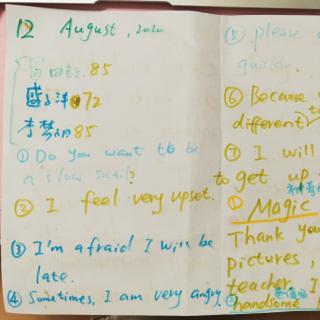 12 August, 2020
85
72
李梦 85
① Do you want to be
a slow snail?
② I feel very upset.
③ I'm afraid I will be
late.
④ Sometimes, I am very angry.
⑤ please
quickly.
⑥ Because
different
⑦ I will
to get up
① Magic
Thank you
pictures,
teacher. I
handsome